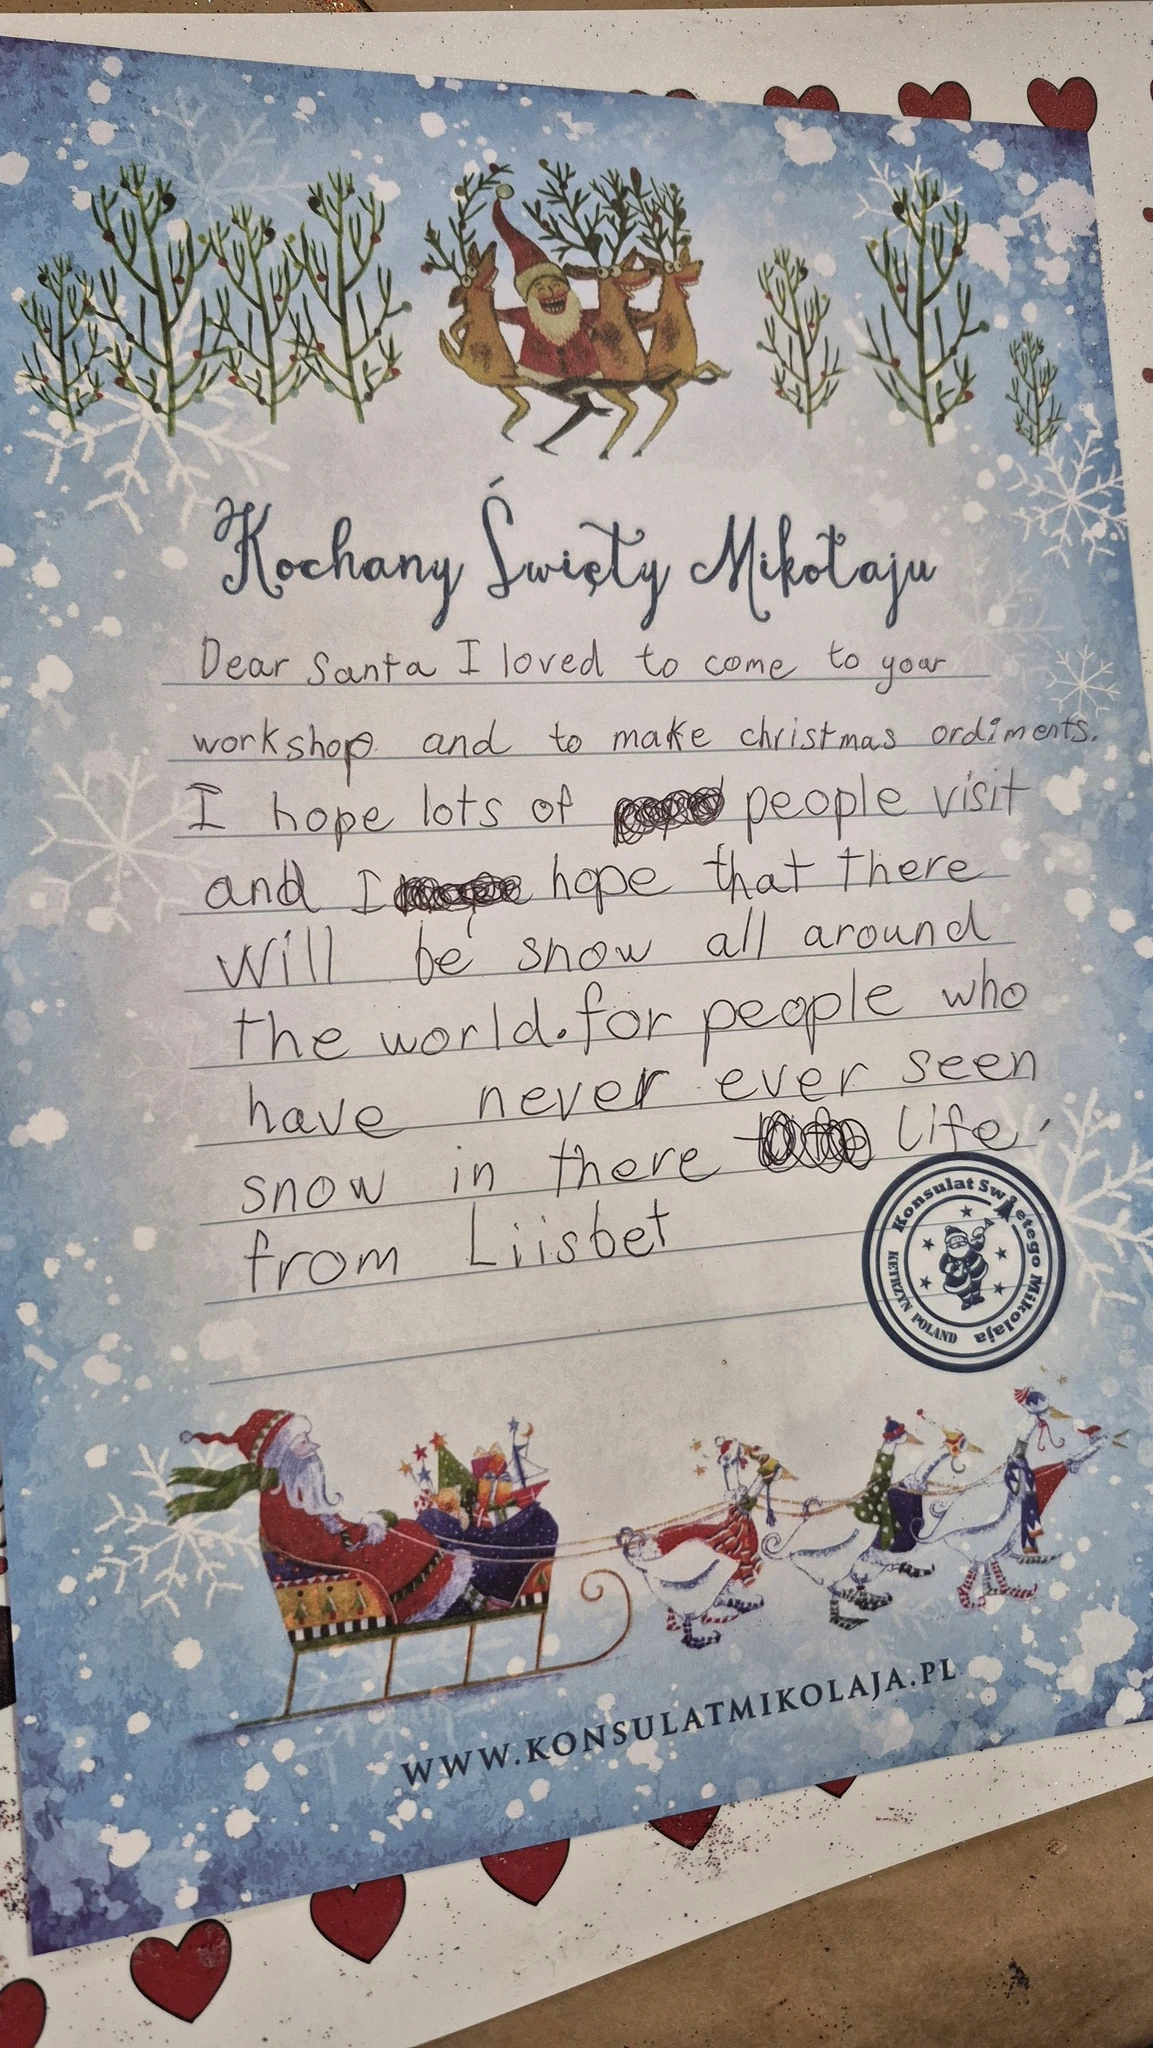 Kochany Święty Mikołaju
Dear Santa I loved to come to your
workshop and to make christmas ordiments.
I hope lots of people visit
and I hope that there
will be snow all around
the world. for people who
have never ever seen
snow in there life.
from Liisbet
Konsulat Świętego Mikołaja
KETRZYN POLAND
WWW.KONSULATMIKOLAJA.PL